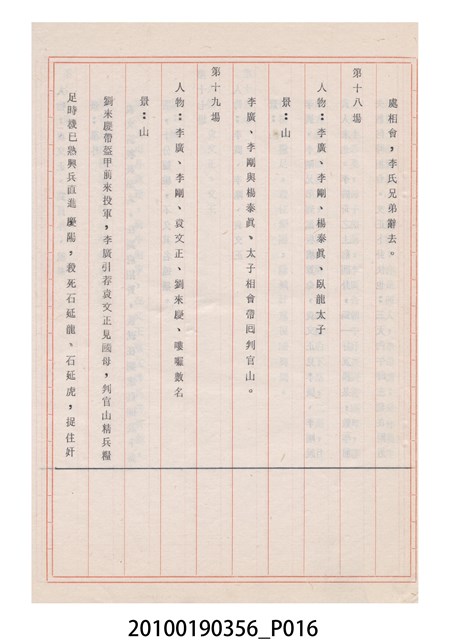 處相會,李氏兄弟辭去。
第十八場
人物:李廣、李剛、楊泰眞、臥龍太子
景:山
李廣、李剛與楊泰眞、太子相會帶囘判官山。
第十九場
人物:李廣、李剛、袁文正、劉來慶、嘍囉數名
景:山
劉來慶帶盔甲前來投軍,李廣引荐袁文正見國母,判官山精兵糧
足時機已熟興兵直進慶陽,殺死石延龍、石延虎,捉住奸
20100190356_P016